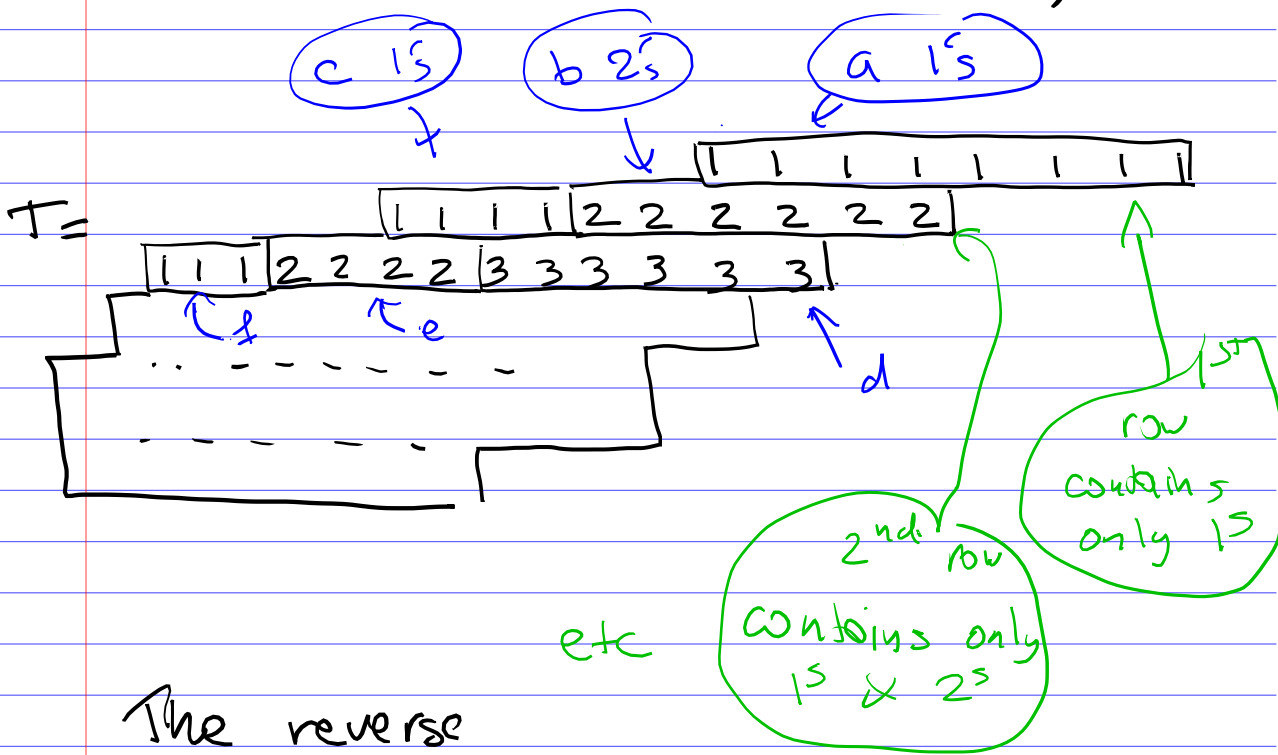 c 1s b 2s a 1s
1 1 1 1 1 1 1 1
T = 1 1 1 1 2 2 2 2 2 2
1 1 1 2 2 2 2 3 3 3 3 3 3
f e d
1st
row
contains
only 1s
2nd row
contains only
1s & 2s
etc
The reverse